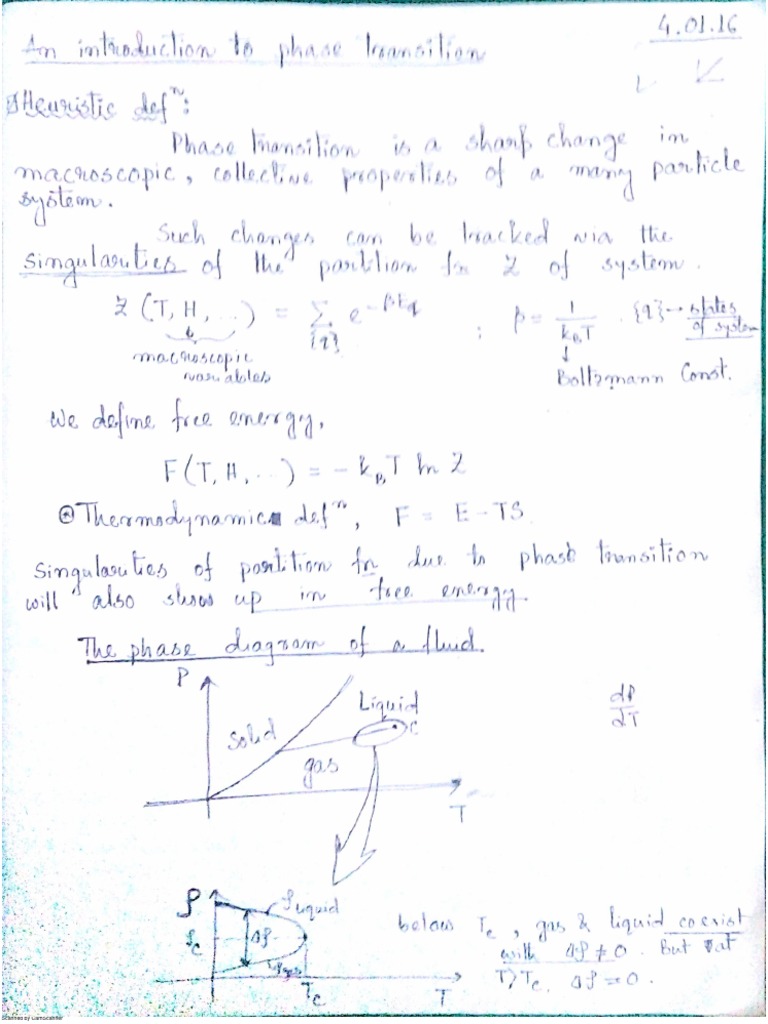 4.01.16
An introduction to phase transition
Heuristic defⁿ:
Phase transition is a sharp change in
macroscopic, collective properties of a many particle
system.
Such changes can be tracked via the
singularities of the partition fn Z of system.
Z (T, H, ...) = Σ e^{-βE_q} ; β = 1/(k_B T) . {q} → states
{q} of system
macroscopic
variables Boltzmann Const.
We define free energy,
F(T, H, ...) = - k_B T ln Z
⊙ Thermodynamic defⁿ, F = E - TS
Singularities of partition fn due to phase transition
will also show up in free energy.
The phase diagram of a fluid.
P
Liquid
dP/dT
Solid
C
gas
T
ρ
ρ_liquid
below Tc, gas & liquid coexist
ρ_c Δρ
with Δρ ≠ 0. But at
ρ_gas
T>Tc. Δρ = 0.
Tc T
Scanned by CamScanner